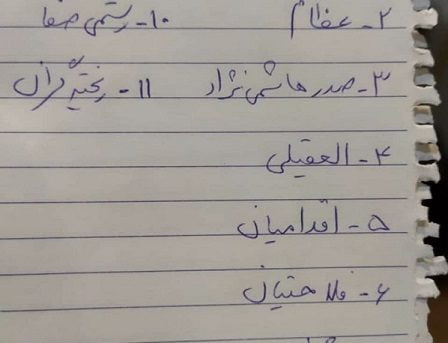 ۲- عظام ۱۰- رستمی صفا
۳- صدرهاشمی نژاد ۱۱- ریخته گران
۴- العقیلی
۵- اقدامیان
۶- فلاحتیان